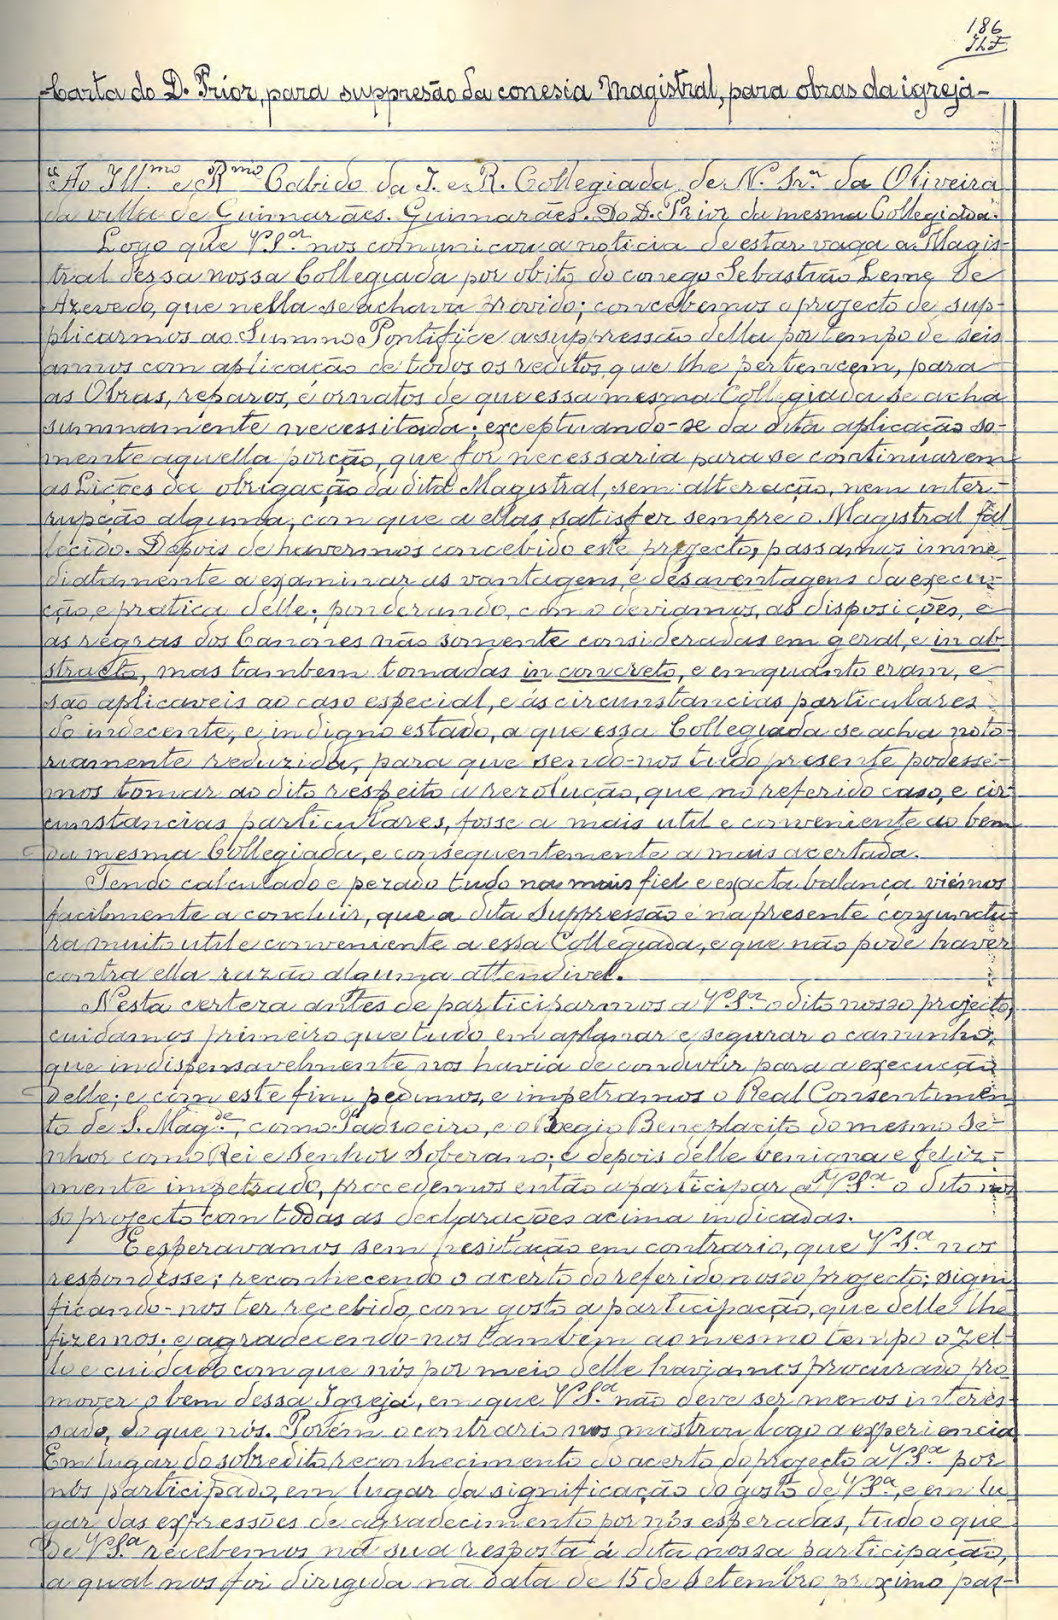 186
Carta do D. Prior, para suppresão da conesia Magistral, para obras da igreja-
"Ao Ill.mo e R.mo Cabido da I. e R. Collegiada de N. Sr.a da Oliveira
da villa de Guimarães. Guimarães. Do D. Prior da mesma Collegiada.
Logo que V.S.a nos comunicou a noticia de estar vaga a Magis-
tral dessa nossa Collegiada por obito do conego Sebastião Leme de
Azevedo, que nella se achava provido; concebemos o projecto de sup-
plicarmos ao Summo Pontifice a suppressão della por tempo de seis
annos com aplicação de todos os reditos que lhe pertencem, para
as Obras, reparos, e ornatos de que essa mesma Collegiada se acha
summamente necessitada; exceptuando-se da dita aplicação so-
mente aquella porção, que for necessaria para se continuarem
as Lições da obrigação da dita Magistral, sem alteração, nem inter-
rupção alguma, com que a ellas satisfez sempre o Magistral fal
lecido. Depois de havermos concebido este projecto, passamos imme-
diatamente a examinar as vantagens, e desavantagens da execu-
ção, e pratica delle; ponderando, como deviamos, as disposições, e
as regras dos Canones não somente consideradas em geral, e in ab
stracto, mas tambem tomadas in concreto, e emquanto eram, e
são aplicaveis ao caso especial, e ás circumstancias particulares
do indecente, e indigno estado, a que essa Collegiada se acha noto-
riamente reduzida, para que sendo-nos tudo presente podesse-
mos tomar ao dito respeito a rezolução, que no referido caso, e cir-
cunstancias particulares, fosse a mais util e conveniente ao bem
da mesma Collegiada, e consequentemente a mais acertada.
Tendo calculado e pezado tudo na mais fiel e exacta balança viémos
facilmente a concluir, que a dita Suppressão é na presente conjunctu-
ra muito util e conveniente a essa Collegiada, e que não pode haver
contra ella razão alguma attendivel.
Nesta certeza antes de participarmos a V.S.a o dito nosso projecto,
cuidamos primeiro que tudo em aplanar e segurar o caminho,
que indispensavelmente nos havia de conduzir para a execução
delle; e com este fim pedimos, e impetramos o Real Consentimen
to de S. Mag.de, como Padroeiro, e o Regio Beneplacito do mesmo Se-
nhor como Rei e Senhor Soberano; e depois delle benigna e feliz-
mente impetrado, procedemos então a participar a V.S.a o dito nos
so projecto com todas as declarações acima indicadas.
E esperavamos sem hesitação em contrario, que V.S.a nos
respondesse; reconhecendo o acerto do referido nosso projecto; signi
ficando-nos ter recebido com gosto a participação, que delle lhe
fizemos; e agradecendo-nos tambem ao mesmo tempo o zel-
lo e cuidado com que nós por meio delle haviamos procurado pro
mover o bem dessa Igreja, em que V.S.a não deve ser menos interes-
sado, do que nós. Porém o contrario nos mostrou logo a experiencia
Em lugar do sobredito reconhecimento do acerto do projecto a V.S.a por
nós participado, em lugar da significação do gosto de V.S.a, e em lu
gar das expressões de agradecimento por nós esperadas, tudo o que
de V.S.a recebemos na sua resposta á dita nossa participação,
a qual nos foi dirigida na data de 15 de Setembro proximo pas-